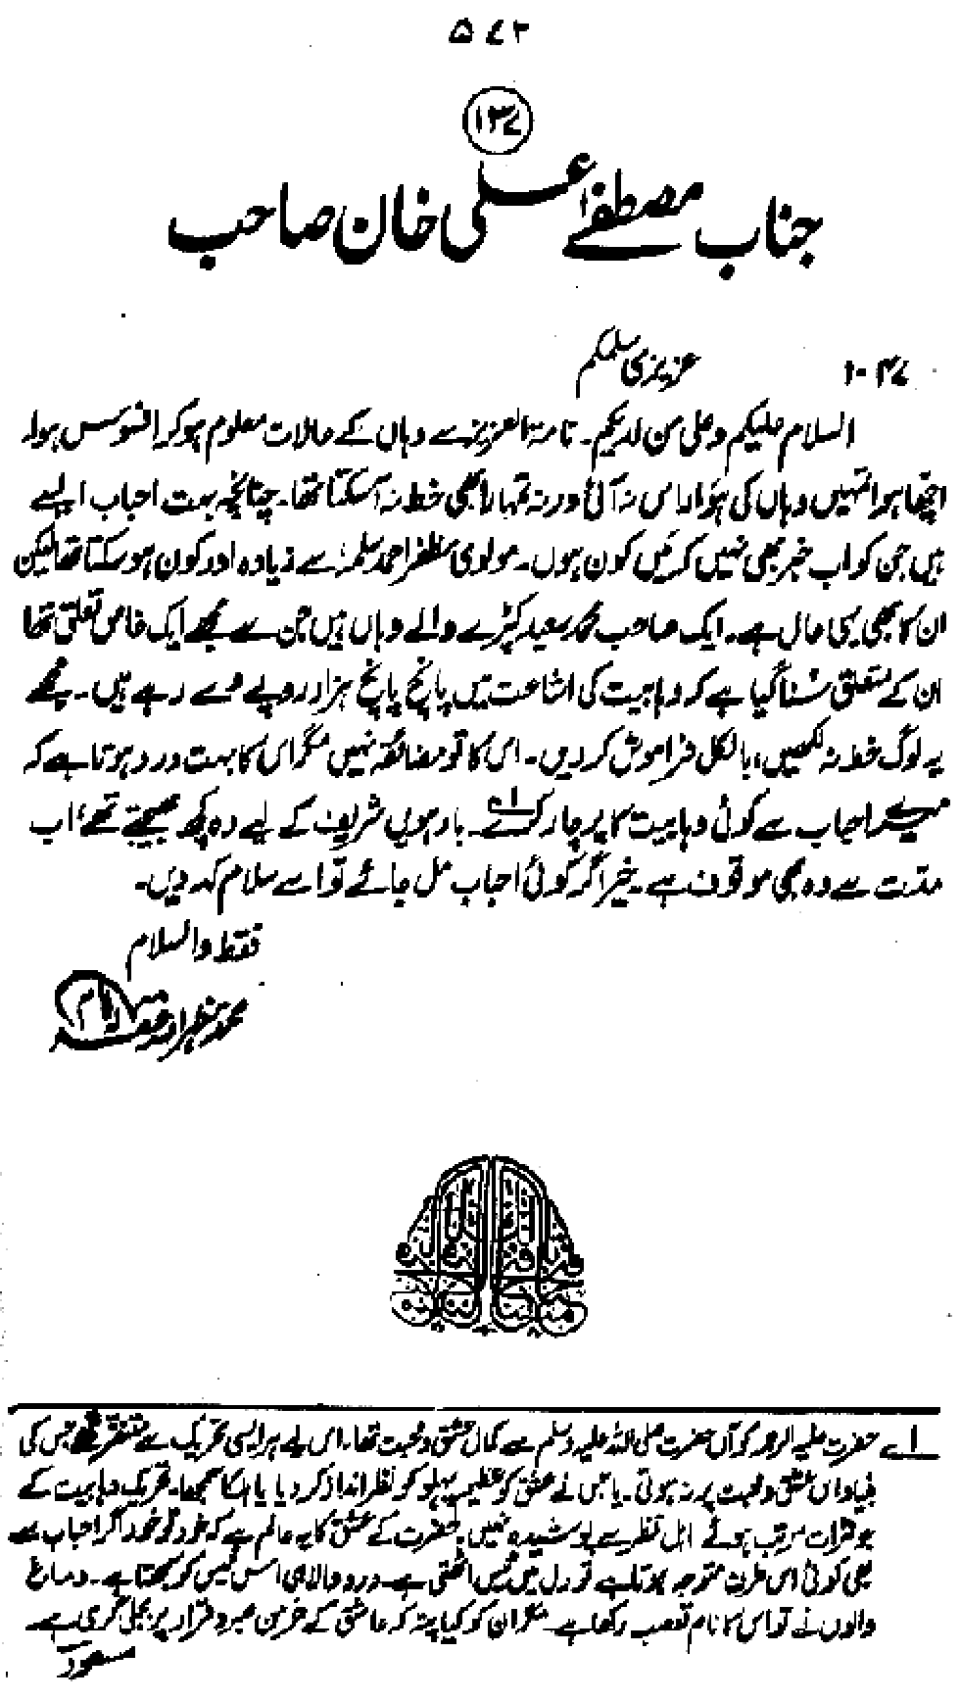 ۵۷۲
۱۳۷
جناب مصطفےٰ علی خان صاحب
۱۰۴۷ عزیزی سلمکم
السلام علیکم وعلیٰ من لدیکم۔ نامۃ العزیز سے وہاں کے حالات معلوم ہو کر افسوس ہوا۔
اچھا ہوا تمہیں وہاں کی ہوا راس نہ آئی ورنہ تمہارا بھی خط نہ آسکتا تھا۔ چنانچہ بہت احباب ایسے
ہیں جن کو اب خبر بھی نہیں کہ میں کون ہوں۔ مولوی مظفر احمد سلمہٗ سے زیادہ اور کون ہوسکتا تھا لیکن
ان کا بھی یہی حال ہے۔ ایک صاحب محمد سعید کپڑے والے وہاں ہیں جن سے مجھے ایک خاص تعلق تھا
ان کے متعلق سُنا گیا ہے کہ وہابیت کی اشاعت میں پانچ پانچ ہزار روپے دے رہے ہیں۔ مجھے
یہ لوگ خط نہ لکھیں، بالکل فراموش کر دیں۔ اس کا تو مضائقہ نہیں مگر اس کا بہت درد ہوتا ہے کہ
میرے احباب سے کوئی وہابیت کا پرچار کرے۔ ۱ے بارہویں شریف کے لیے وہ کچھ بھیجتے تھے، اب
مدت سے وہ بھی موقوف ہے۔ خیر اگر کوئی احباب مل جائے تو اسے سلام کہہ دیں۔
فقط والسلام
محمد مظہر اللہ غفرلہ
۱ے حضرت علیہ الرحمہ کو آں حضرت صلی اللہ علیہ وسلم سے کمال عشق و محبت تھا۔ اس لیے ہر ایسی تحریک سے متنفر تھے جس کی
بنیاد اس عشق و محبت پر نہ ہوتی۔ یا جس نے عشق کو عظیم پہلو کو نظر انداز کر دیا یا ہلکا سمجھا۔ تحریک وہابیت کے
جو ثمرات مرتب ہوئے اہل نظر سے پوشیدہ نہیں۔ حضرت کے عشق کا یہ عالم ہے کہ خود تو خود اگر احباب سے
بھی کوئی اس طرف متوجہ ہوتا ہے تو دل میں ٹیس اٹھتی ہے۔ درد والا ہی اس ٹیس کو سمجھتا ہے۔ دماغ
والوں نے تو اس کا نام تعصب رکھا ہے۔ مگر ان کو کیا پتہ کہ عاشق کے خرمن صبر و قرار پر بجلی گری ہے۔
مسعود